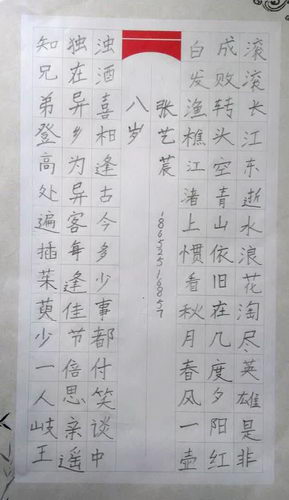 滚滚长江东逝水浪花淘尽、英雄是非
成败转头空青山依旧在几度夕阳红
白发渔樵江渚上惯看秋月春风一壶
张艺
18652516857
八岁
浊酒喜相逢古今多少事都付笑谈中
独在异乡为异客每逢佳节倍思亲遥
知兄弟登高处遍插茱萸少一人岐王